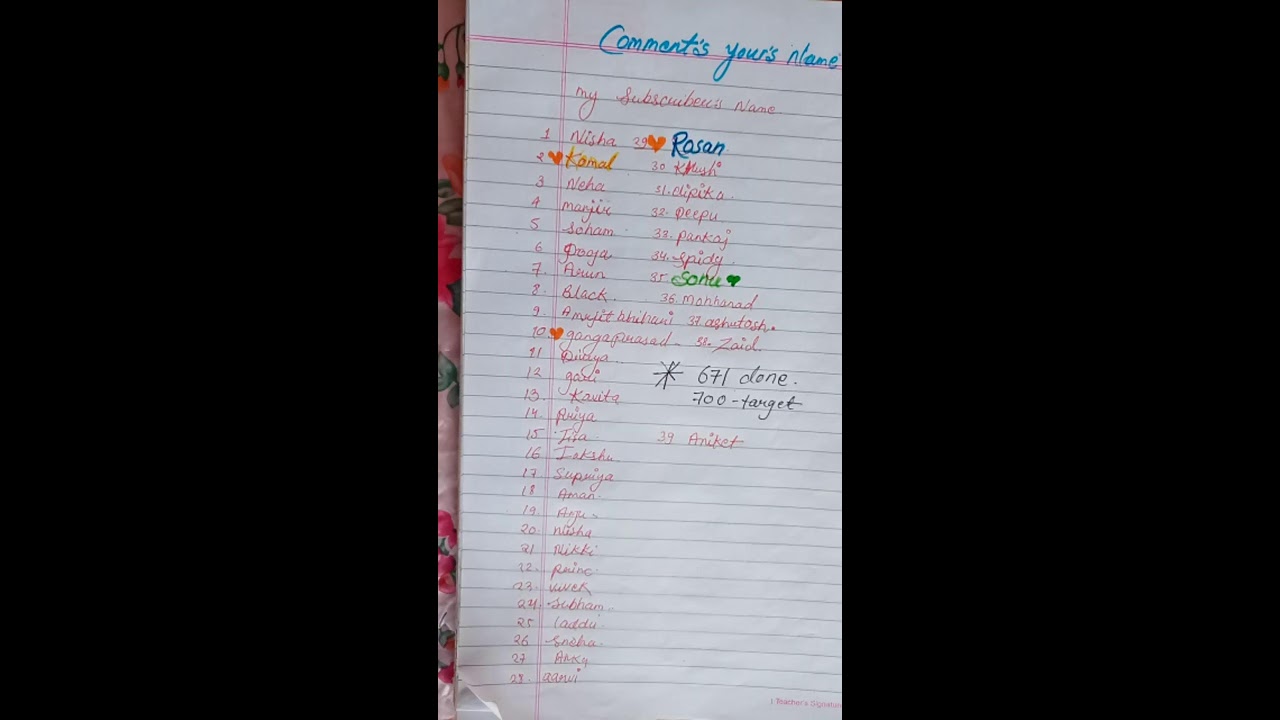 Comment's your's Name
My Subscriber's Name
1 Nisha
2 Komal
3 Neha
4 manjir
5 Soham
6 Pooja
7. Arun
8. Black.
9. Amrjit bhihari
10. gangaprasad
11 Divya
12 gauri
13. Kavita
14. Priya
15 Tisa
16 Iakshu
17. Supriya
18 Aman.
19. Anju
20. nisha
21 Nikki
22. princ
23. vivek
24. Subham..
25 laddu
26 Sneha.
27 Anky
28. aanvi
29 Rosan
30 Khushi
31. dipika.
32. Deepu
33. pankaj
34. Spidy
35. Sonu
36. Mohhanad
37 ashutosh.
38. Zaid.
671 done.
700-target
39 Aniket
Teacher's Signatur